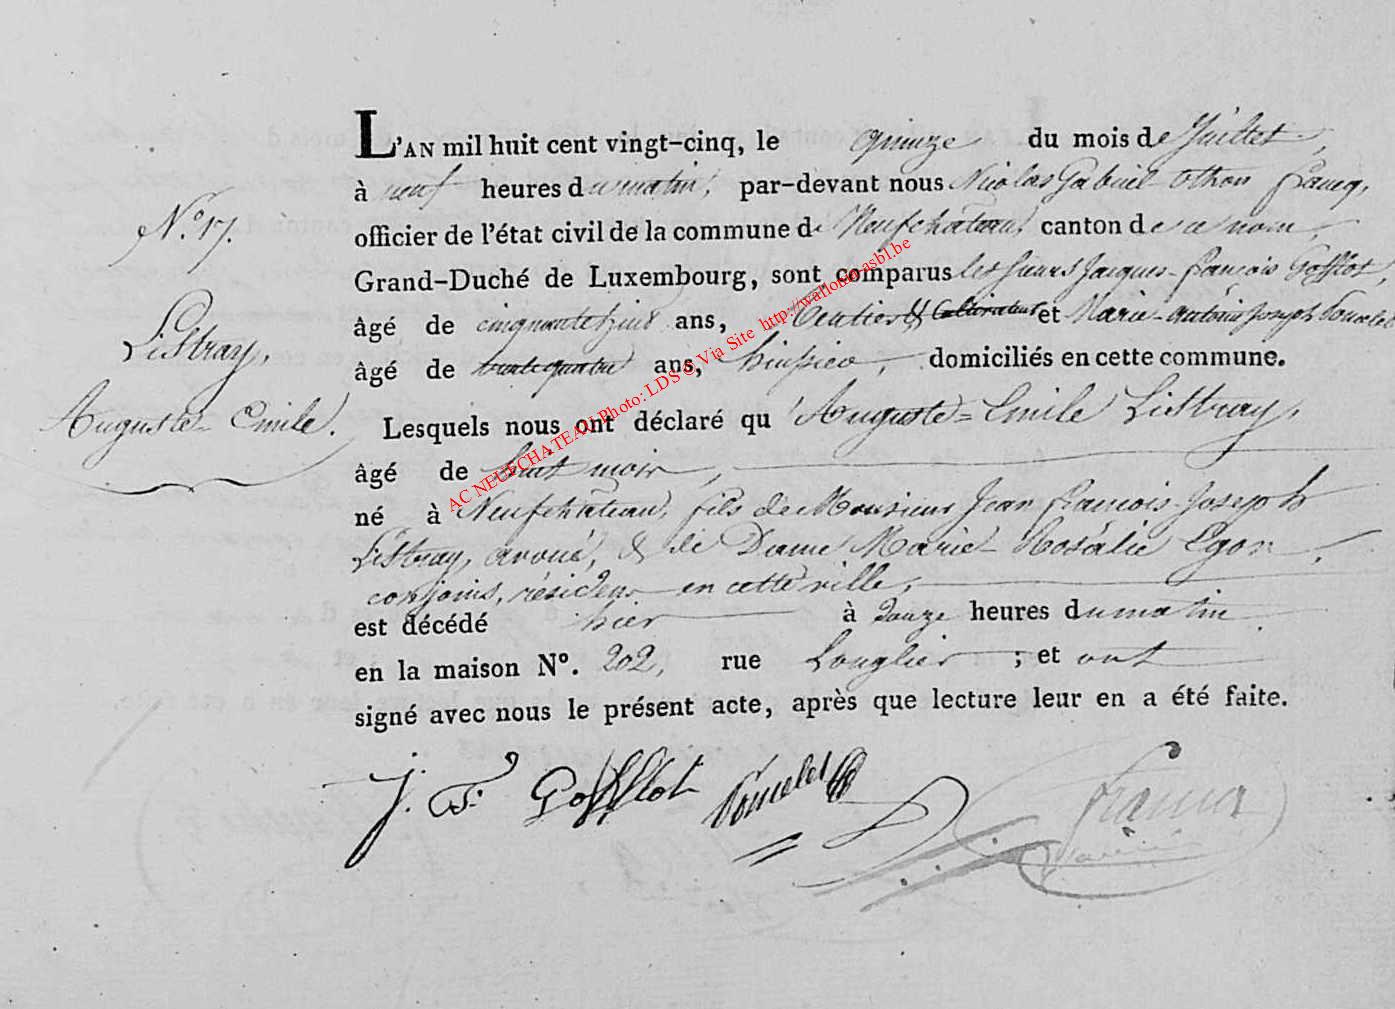 L'AN mil huit cent vingt-cinq, le quinze du mois de Juillet,
à neuf heures du matin, par-devant nous Nicolas Gabriel Othon Francq,
N.° 17.
officier de l'état civil de la commune de Neufchateau, canton de ce nom,
Grand-Duché de Luxembourg, sont comparus les sieurs Jacques-françois Gofflot,
Listray,
Auguste-Emile.
âgé de ans, Rentier & Cultivateur et Marie-Antoine Joseph Poncelet
âgé de trente quatre ans, huissier, domiciliés en cette commune.
Lesquels nous ont déclaré qu'Auguste-Emile Listray,
âgé de huit mois,
né à Neufchateau, fils de Monsieur Jean françois-Joseph
Listray, avoué, & de Dame Marie-Rosalie Egon
conjoins, résidens en cette ville,
est décédé hier à douze heures du matin
en la maison N°. 202, rue Longlier ; et ont
signé avec nous le présent acte, après que lecture leur en a été faite.
J. F. Gofflot Poncelet
AC NEUFCHATEAU Photo: LDS © Via Site http://wallonia-asbl.be